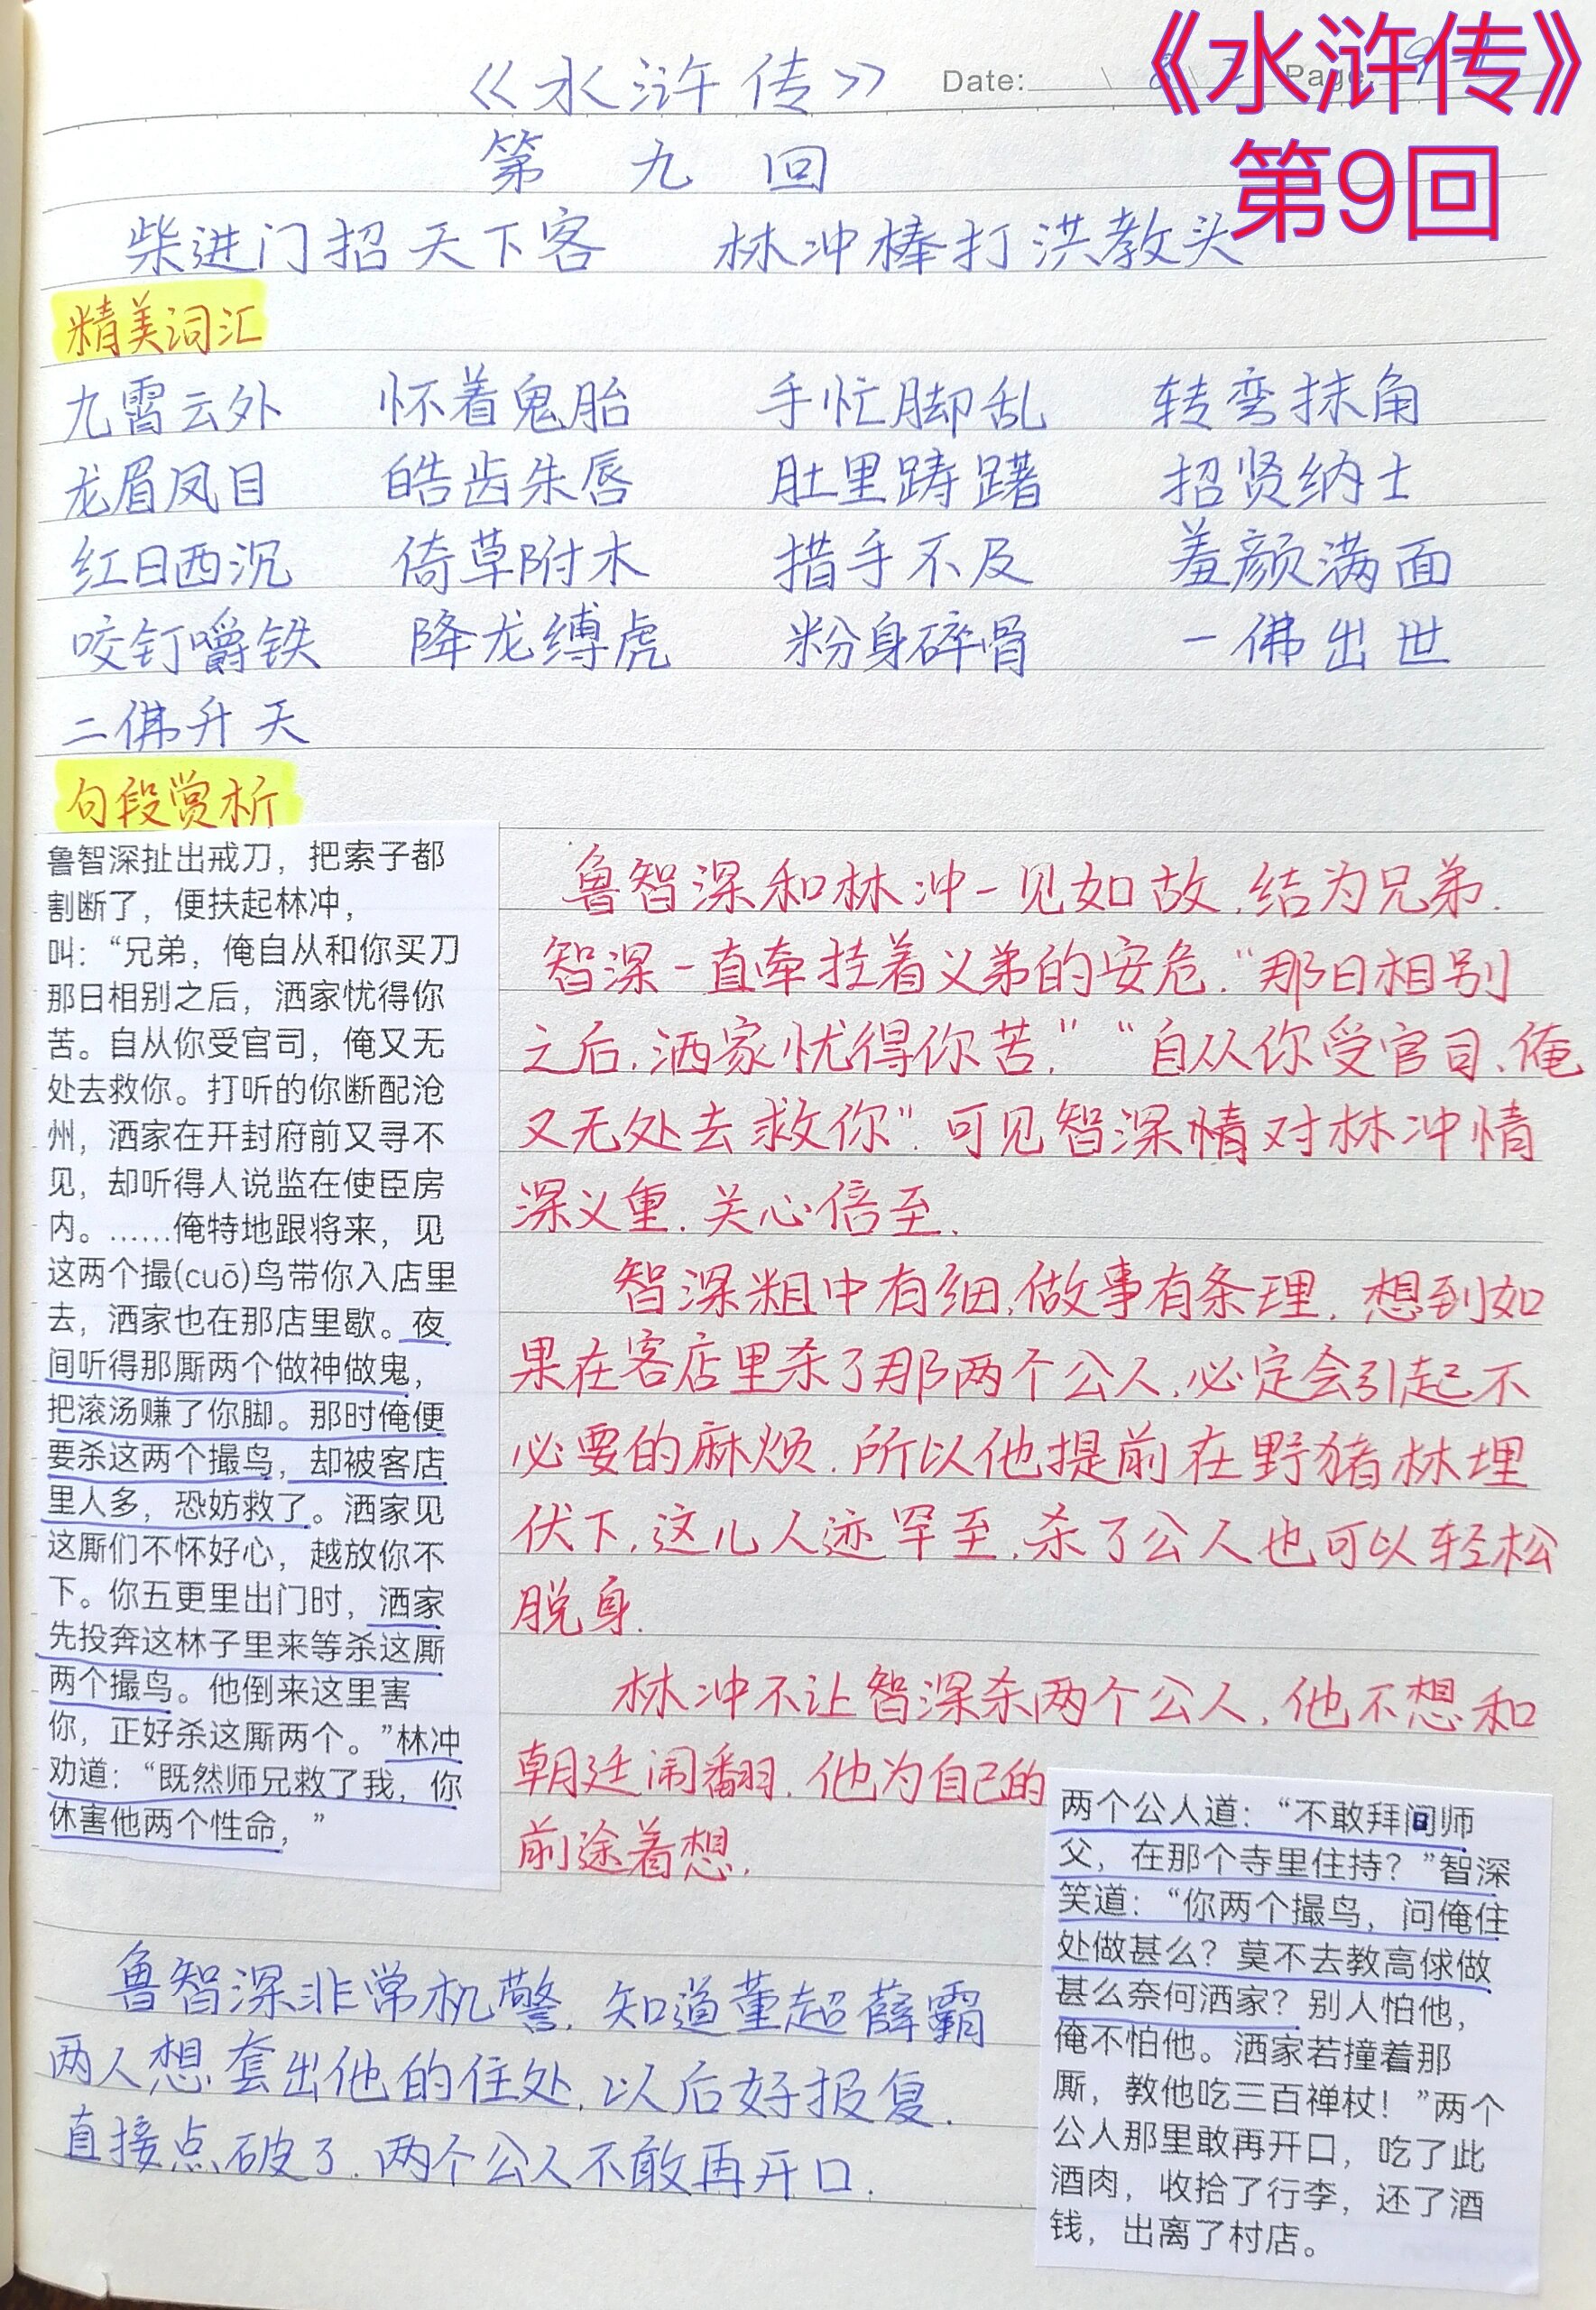 《水浒传》
第9回
《水浒传》 Date: Page
第 九 回
柴进门招天下客 林冲棒打洪教头
精美词汇
九霄云外 怀着鬼胎 手忙脚乱 转弯抹角
龙眉凤目 皓齿朱唇 肚里踌躇 招贤纳士
红日西沉 倚草附木 措手不及 羞颜满面
咬钉嚼铁 降龙缚虎 粉身碎骨 一佛出世
二佛升天
句段赏析
鲁智深扯出戒刀，把索子都
割断了，便扶起林冲，
叫：“兄弟，俺自从和你买刀
那日相别之后，洒家忧得你
苦。自从你受官司，俺又无
处去救你。打听的你断配沧
州，洒家在开封府前又寻不
见，却听得人说监在使臣房
内。……俺特地跟将来，见
这两个撮(cuō)鸟带你入店里
去，洒家也在那店里歇。夜
间听得那厮两个做神做鬼，
把滚汤赚了你脚。那时俺便
要杀这两个撮鸟，却被客店
里人多，恐妨救了。洒家见
这厮们不怀好心，越放你不
下。你五更里出门时，洒家
先投奔这林子里来等杀这厮
两个撮鸟。他倒来这里害
你，正好杀这厮两个。”林冲
劝道：“既然师兄救了我，你
休害他两个性命，”
鲁智深和林冲一见如故.结为兄弟.
智深一直牵挂着义弟的安危.“那日相别
之后.洒家忧得你苦.”“自从你受官司、俺
又无处去救你”.可见智深情对林冲情
深义重.关心倍至.
智深粗中有细.做事有条理.想到如
果在客店里杀了那两个公人.必定会引起不
必要的麻烦.所以他提前在野猪林埋
伏下.这儿人迹罕至.杀了公人也可以轻松
脱身.
林冲不让智深杀两个公人.他不想和
朝廷闹翻.他为自己的
前途着想.
两个公人道：“不敢拜问师
父，在那个寺里住持？”智深
笑道：“你两个撮鸟，问俺住
处做甚么？莫不去教高俅做
甚么奈何洒家？别人怕他，
俺不怕他。洒家若撞着那
厮，教他吃三百禅杖！”两个
公人那里敢再开口，吃了此
酒肉，收拾了行李，还了酒
钱，出离了村店。
鲁智深非常机警.知道董超薛霸
两人想套出他的住处.以后好报复.
直接点破了.两个公人不敢再开口.